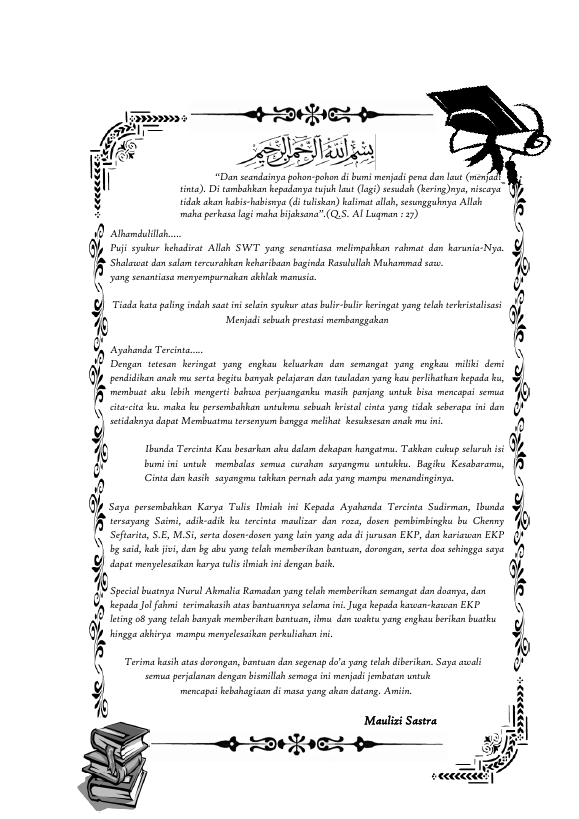 بسم الله الرحمن الرحيم
“Dan seandainya pohon-pohon di bumi menjadi pena dan laut (menjadi
tinta). Di tambahkan kepadanya tujuh laut (lagi) sesudah (kering)nya, niscaya
tidak akan habis-habisnya (di tuliskan) kalimat allah, sesungguhnya Allah
maha perkasa lagi maha bijaksana”.(Q.S. Al Luqman : 27)
Alhamdulillah.....
Puji syukur kehadirat Allah SWT yang senantiasa melimpahkan rahmat dan karunia-Nya.
Shalawat dan salam tercurahkan keharibaan baginda Rasulullah Muhammad saw.
yang senantiasa menyempurnakan akhlak manusia.
Tiada kata paling indah saat ini selain syukur atas bulir-bulir keringat yang telah terkristalisasi
Menjadi sebuah prestasi membanggakan
Ayahanda Tercinta.....
Dengan tetesan keringat yang engkau keluarkan dan semangat yang engkau miliki demi
pendidikan anak mu serta begitu banyak pelajaran dan tauladan yang kau perlihatkan kepada ku,
membuat aku lebih mengerti bahwa perjuanganku masih panjang untuk bisa mencapai semua
cita-cita ku. maka ku persembahkan untukmu sebuah kristal cinta yang tidak seberapa ini dan
setidaknya dapat Membuatmu tersenyum bangga melihat kesuksesan anak mu ini.
Ibunda Tercinta Kau besarkan aku dalam dekapan hangatmu. Takkan cukup seluruh isi
bumi ini untuk membalas semua curahan sayangmu untukku. Bagiku Kesabaramu,
Cinta dan kasih sayangmu takkan pernah ada yang mampu menandinginya.
Saya persembahkan Karya Tulis Ilmiah ini Kepada Ayahanda Tercinta Sudirman, Ibunda
tersayang Saimi, adik-adik ku tercinta maulizar dan roza, dosen pembimbingku bu Chenny
Seftarita, S.E, M.Si, serta dosen-dosen yang lain yang ada di jurusan EKP, dan kariawan EKP
bg said, kak jivi, dan bg abu yang telah memberikan bantuan, dorongan, serta doa sehingga saya
dapat menyelesaikan karya tulis ilmiah ini dengan baik.
Special buatnya Nurul Akmalia Ramadan yang telah memberikan semangat dan doanya, dan
kepada Jol fahmi terimakasih atas bantuannya selama ini. Juga kepada kawan-kawan EKP
leting 08 yang telah banyak memberikan bantuan, ilmu dan waktu yang engkau berikan buatku
hingga akhirya mampu menyelesaikan perkuliahan ini.
Terima kasih atas dorongan, bantuan dan segenap do’a yang telah diberikan. Saya awali
semua perjalanan dengan bismillah semoga ini menjadi jembatan untuk
mencapai kebahagiaan di masa yang akan datang. Amiin.
Maulizi Sastra